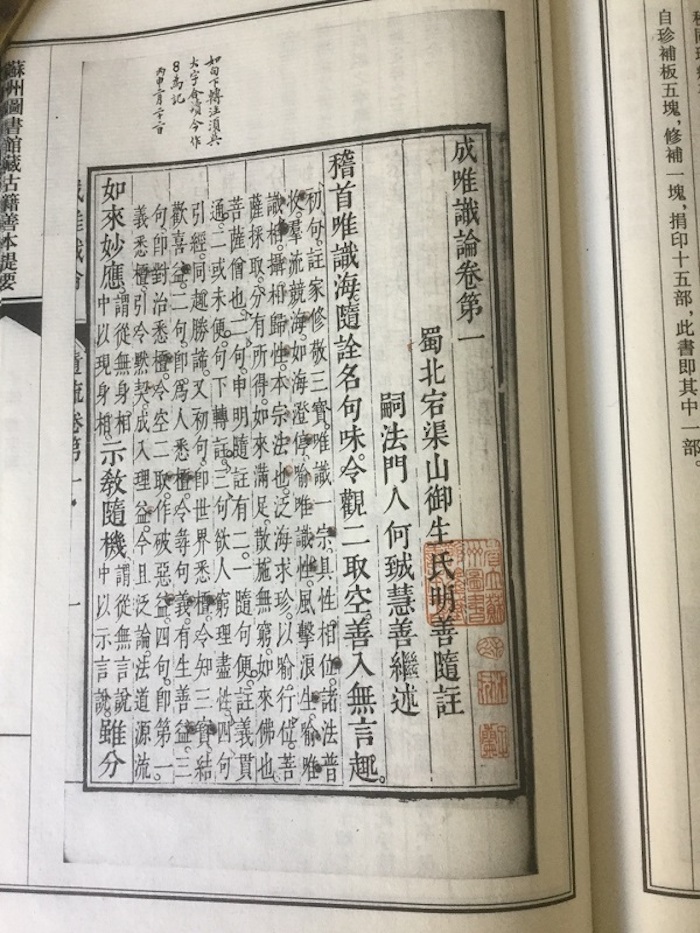 自珍補板五塊，修補一塊，捐印十五部，此書即其中一部。
如句下轉注須與
大字會續令作
8為記
丙申二月二十二日
成唯識論卷第一
蜀北宕渠山御生氏明善隨註
嗣法門人何㦤慧善繼述
稽首唯識海。隨詮名句味。令觀二取空。善入無言趣。
初句。註家修敬三寶。唯識一宗。具性相位。諸法普
收。羣流競海。如海澄停。喻唯識性。風擊浪生。喻唯
識相。攝相歸性。本宗法也。泛海求珍。以喻行位。菩
薩採取。分有所得。如來滿足。散施無窮。如來佛也。
菩薩僧也。二句。申明隨註有二。一隨句便。註義貫
通。二或未便。句下轉註。三句欲人窮理盡性。四句
引經。同趣勝諦。又初句。即世界悉檀。令知三寶結
歡喜益。二句。即為人悉檀。令尋句義。有生善益。三
句。即對治悉檀。令空二取。作破惡益。四句。即第一
義悉檀。引令默契。成入理益。今且泛論法道源流
如來妙應。謂從無身相中以現身相。示教隨機。謂從無言說中以示言說。雖分
隨疏卷第一
一
蘇州圖書館藏古籍善本提要